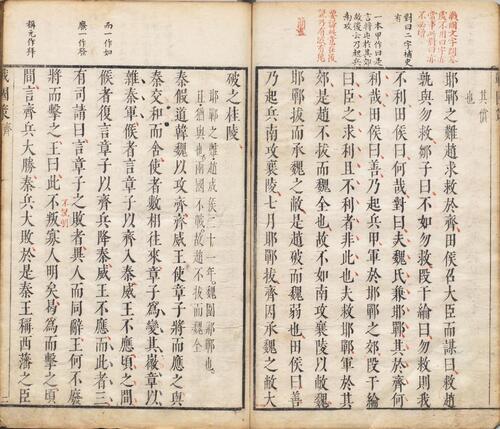 對曰二字補史
有
一本甲作曰是
言將屯於其郊
故後云乃起兵
南攻
其憤
也
邯鄲之難趙求救於齊田侯召大臣而謀曰救趙
孰與勿救鄒子曰不如勿救叚干綸曰勿救則我
不利田侯曰何哉對曰夫魏氏兼邯鄲其於齊何
利哉田侯曰善乃起兵甲軍於邯鄲之郊叚干綸
曰臣之求利且不利者非此也夫救邯鄲軍於其
郊是趙不拔而魏全也故不如南攻襄陵以敝魏
邯鄲拔而承魏之敝是趙破而魏弱也田侯曰善
乃起兵南攻襄陵七月邯鄲拔齊因承魏之敝大
破之桂陵
邯鄲之難趙成侯二十一年魏圍邯鄲也
且猶與也兩國不戰故趙不拔而魏全
秦假道韓魏以攻齊齊威王使章子將而應之與
秦交和而舍使者數相往來章子為變其徽章以
雜秦軍候者言章子以齊入秦威王不應頃之間
候者復言章子以齊兵降秦威王不應而此者三
有司請曰言章子之敗者異人而同辭王何不廢
將而擊之王曰此不叛寡人明矣曷為而擊之頃
間言齊兵大勝秦兵大敗於是秦王稱西藩之臣
而一作如
廢一作發
稱元作拜
戰國策 齊 二